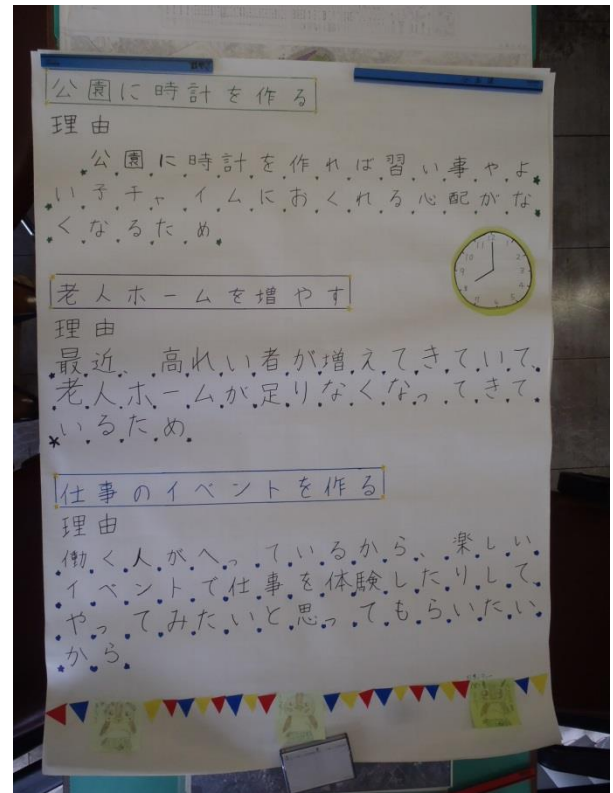 公園に時計を作る
理由
公園に時計を作れば習い事やよ
い子チャイムにおくれる心配がな
くなるため。
12
1
2
3
4
5
6
7
8
9
10
11
老人ホームを増やす
理由
最近、高れい者が増えてきていて、
老人ホームが足りなくなってきて
いるため。
仕事のイベントを作る
理由
働く人がへっているから、楽しい
イベントで仕事を体験したりして、
やってみたいと思ってもらいたい
から。